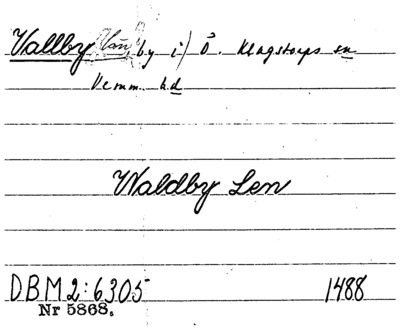 Vallby by i) Ö. Klagstorps sn
Vemm. hd
Waldby Len
DBM 2:6305 1488
Nr 5868.